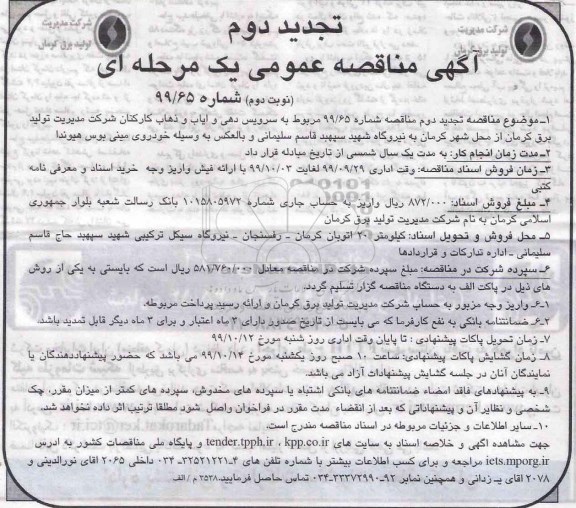 شرکت مدیریت
تولید برق کرمان
تجدید دوم
شرکت مدیریت
تولید برق کرمان
آگهی مناقصه عمومی یک مرحله ای
(نوبت دوم) شماره ۹۹/۶۵
۱ـ موضوع مناقصه تجدید دوم مناقصه شماره ۹۹/۶۵ مربوط به سرویس دهی و ایاب و ذهاب کارکنان شرکت مدیریت تولید
برق کرمان از محل شهر کرمان به نیروگاه شهید سپهبد قاسم سلیمانی و بالعکس به وسیله خودروی مینی بوس هیوندا
۲ـ مدت زمان انجام کار: به مدت یک سال شمسی از تاریخ مبادله قرار داد
۳ـ زمان فروش اسناد مناقصه: وقت اداری ۹۹/۰۹/۲۹ لغایت ۹۹/۱۰/۰۳ با ارائه فیش واریز وجه خرید اسناد و معرفی نامه
کتبی
۴ـ مبلغ فروش اسناد: ۸۷۲/۰۰۰ ریال واریز به حساب جاری شماره ۱۰۱۵۸۰۵۹۷۲ بانک رسالت شعبه بلوار جمهوری
اسلامی کرمان به نام شرکت مدیریت تولید برق کرمان
۵ـ محل فروش و تحویل اسناد: کیلومتر ۲۰ اتوبان کرمان ـ رفسنجان ـ نیروگاه سیکل ترکیبی شهید سپهبد حاج قاسم
سلیمانی ـ اداره تدارکات و قراردادها
۶ـ سپرده شرکت در مناقصه: مبلغ سپرده شرکت در مناقصه معادل ۵۸۱/۷۶۰/۰۰۰ ریال است که بایستی به یکی از روش
های ذیل در پاکت الف به دستگاه مناقصه گزار تسلیم گردد.
۶ـ۱ـ واریز وجه مزبور به حساب شرکت مدیریت تولید برق کرمان و ارائه رسید پرداخت مربوطه.
۶ـ۲ـ ضمانتنامه بانکی به نفع کارفرما که می بایست از تاریخ صدور دارای ۳ ماه اعتبار و برای ۳ ماه دیگر قابل تمدید باشد.
۷ـ زمان تحویل پاکات پیشنهادی : تا پایان وقت اداری روز شنبه مورخ ۹۹/۱۰/۱۳
۸ـ زمان گشایش پاکات پیشنهادی: ساعت ۱۰ صبح روز یکشنبه مورخ ۹۹/۱۰/۱۴ می باشد که حضور پیشنهاددهندگان یا
نمایندگان آنان در جلسه گشایش پیشنهادات آزاد می باشد.
۹ـ به پیشنهادهای فاقد امضاء ضمانتنامه های بانکی اشتباه یا سپرده های مخدوش، سپرده های کمتر از میزان مقرر، چک
شخصی و نظایر آن و پیشنهاداتی که بعد از انقضاء مدت مقرر در فراخوان واصل شود مطلقا ترتیب اثر داده نخواهد شد.
۱۰ـ سایر اطلاعات و جزئیات مربوطه در اسناد مناقصه مندرج است.
جهت مشاهده آگهی و خلاصه اسناد به سایت های tender.tpph.ir ، kpp.co.ir و پایگاه ملی مناقصات کشور به آدرس
iets.mporg.ir مراجعه و برای کسب اطلاعات بیشتر با شماره تلفن های ۴ـ۳۲۵۲۱۲۲۱ـ۰۳۴ داخلی ۲۰۶۵ آقای نورالدینی و
۲۰۷۸ آقای یـزدانی و همچنین نمابر ۹۲ـ۳۳۳۷۲۹۹۰ـ۰۳۴ تماس حاصل فرمایید. ۲۵۳۸ م / الف